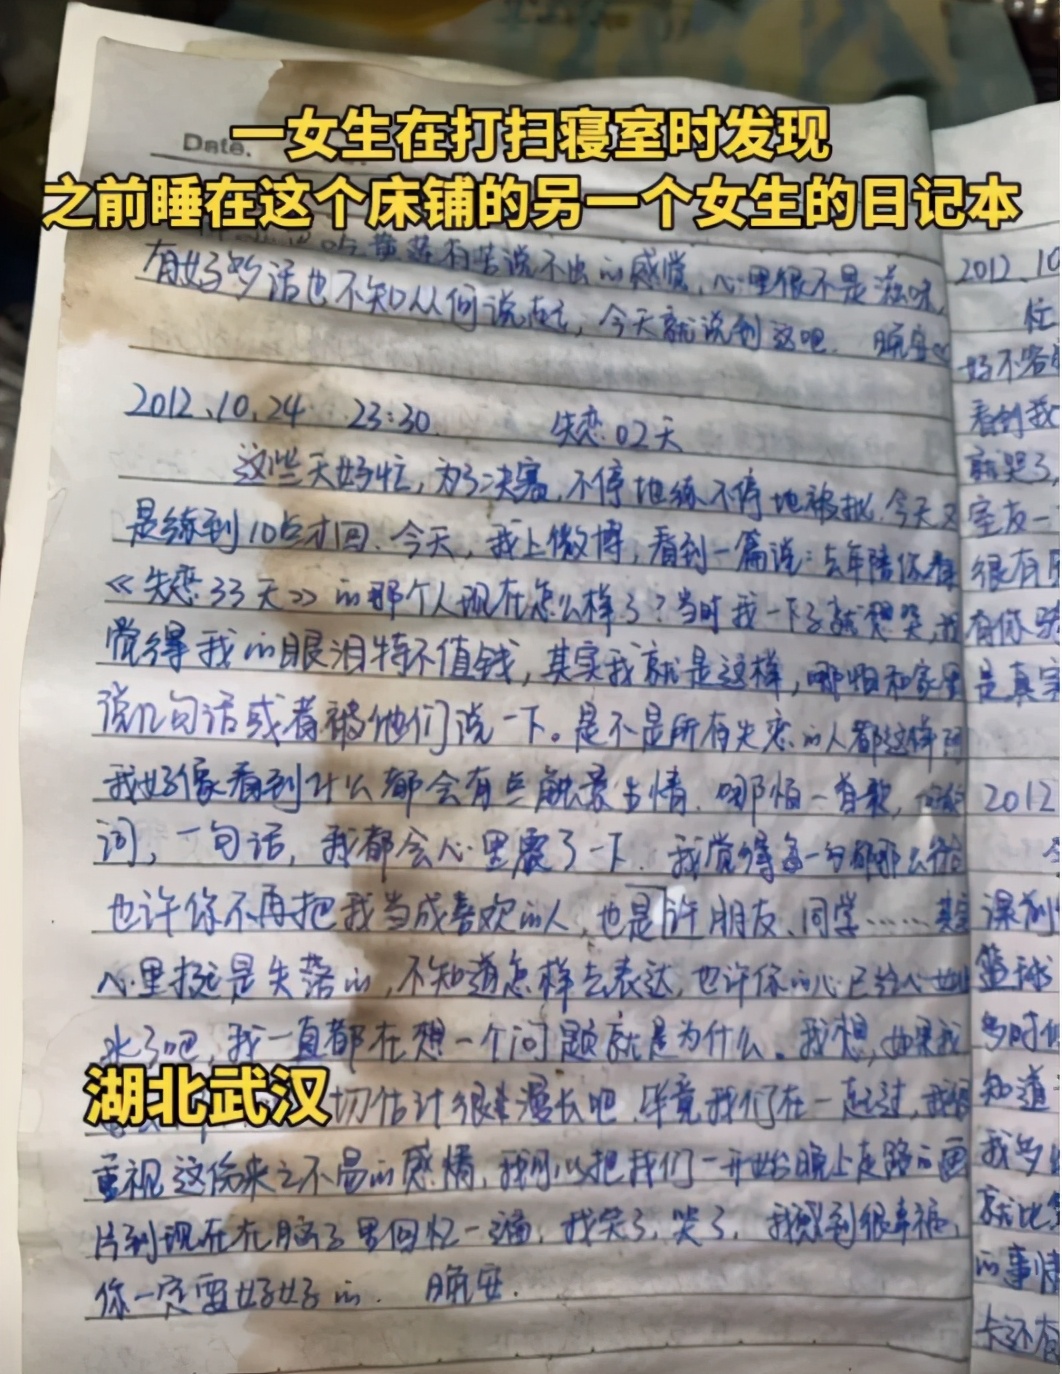 一女生在打扫寝室时发现
Date.
之前睡在这个床铺的另一个女生的日记本
有苦说不出的感觉,心里很不是滋味,
有好多话也不知从何说起,今天就说到这吧. 晚安
2012.10.24 23:30 失恋02天
这些天好忙,为了决赛,不停地练不停地被批.今天又
是练到10点才回.今天,我上微博,看到一篇说:去年陪你看
《失恋33天》的那个人现在怎么样了?当时我一下子就想哭,我
觉得我的眼泪特不值钱,其实我就是这样,哪怕和家里
说几句话或者被他们说一下。是不是所有失恋的人都这样啊
我好像看到什么都会有点触景生情.哪怕一首歌,
词,一句话,我都会心里震了一下.我觉得每一句都那么
也许你不再把我当成喜欢的人,也是许朋友、同学……其实
心里挺是失落的,不知道怎样去表达,也许你的心已经心如止
水了吧,我一直都在想一个问题就是为什么。我想,如果我
湖北武汉
切估计很漫长吧.毕竟我们在一起过,我很
重视这份来之不易的感情,我可以把我们一开始晚上走路的画
片到现在在脑子里回忆一遍,我笑了,哭了,我感到很幸福,
你一定要好好的. 晚安.
2012.10
忙
好不容
看到我
就哭了,
室友一
很有
有你
是真实
2012
今
课
篮球
多时
知道
我多
就比
的事情
卡还有